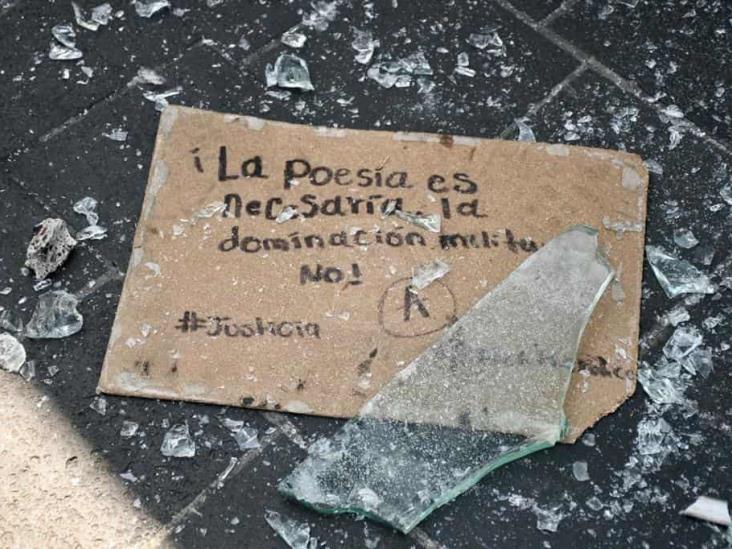 ¡La poesía es
necesaria, la
dominación milita
No!
A
#Justicia